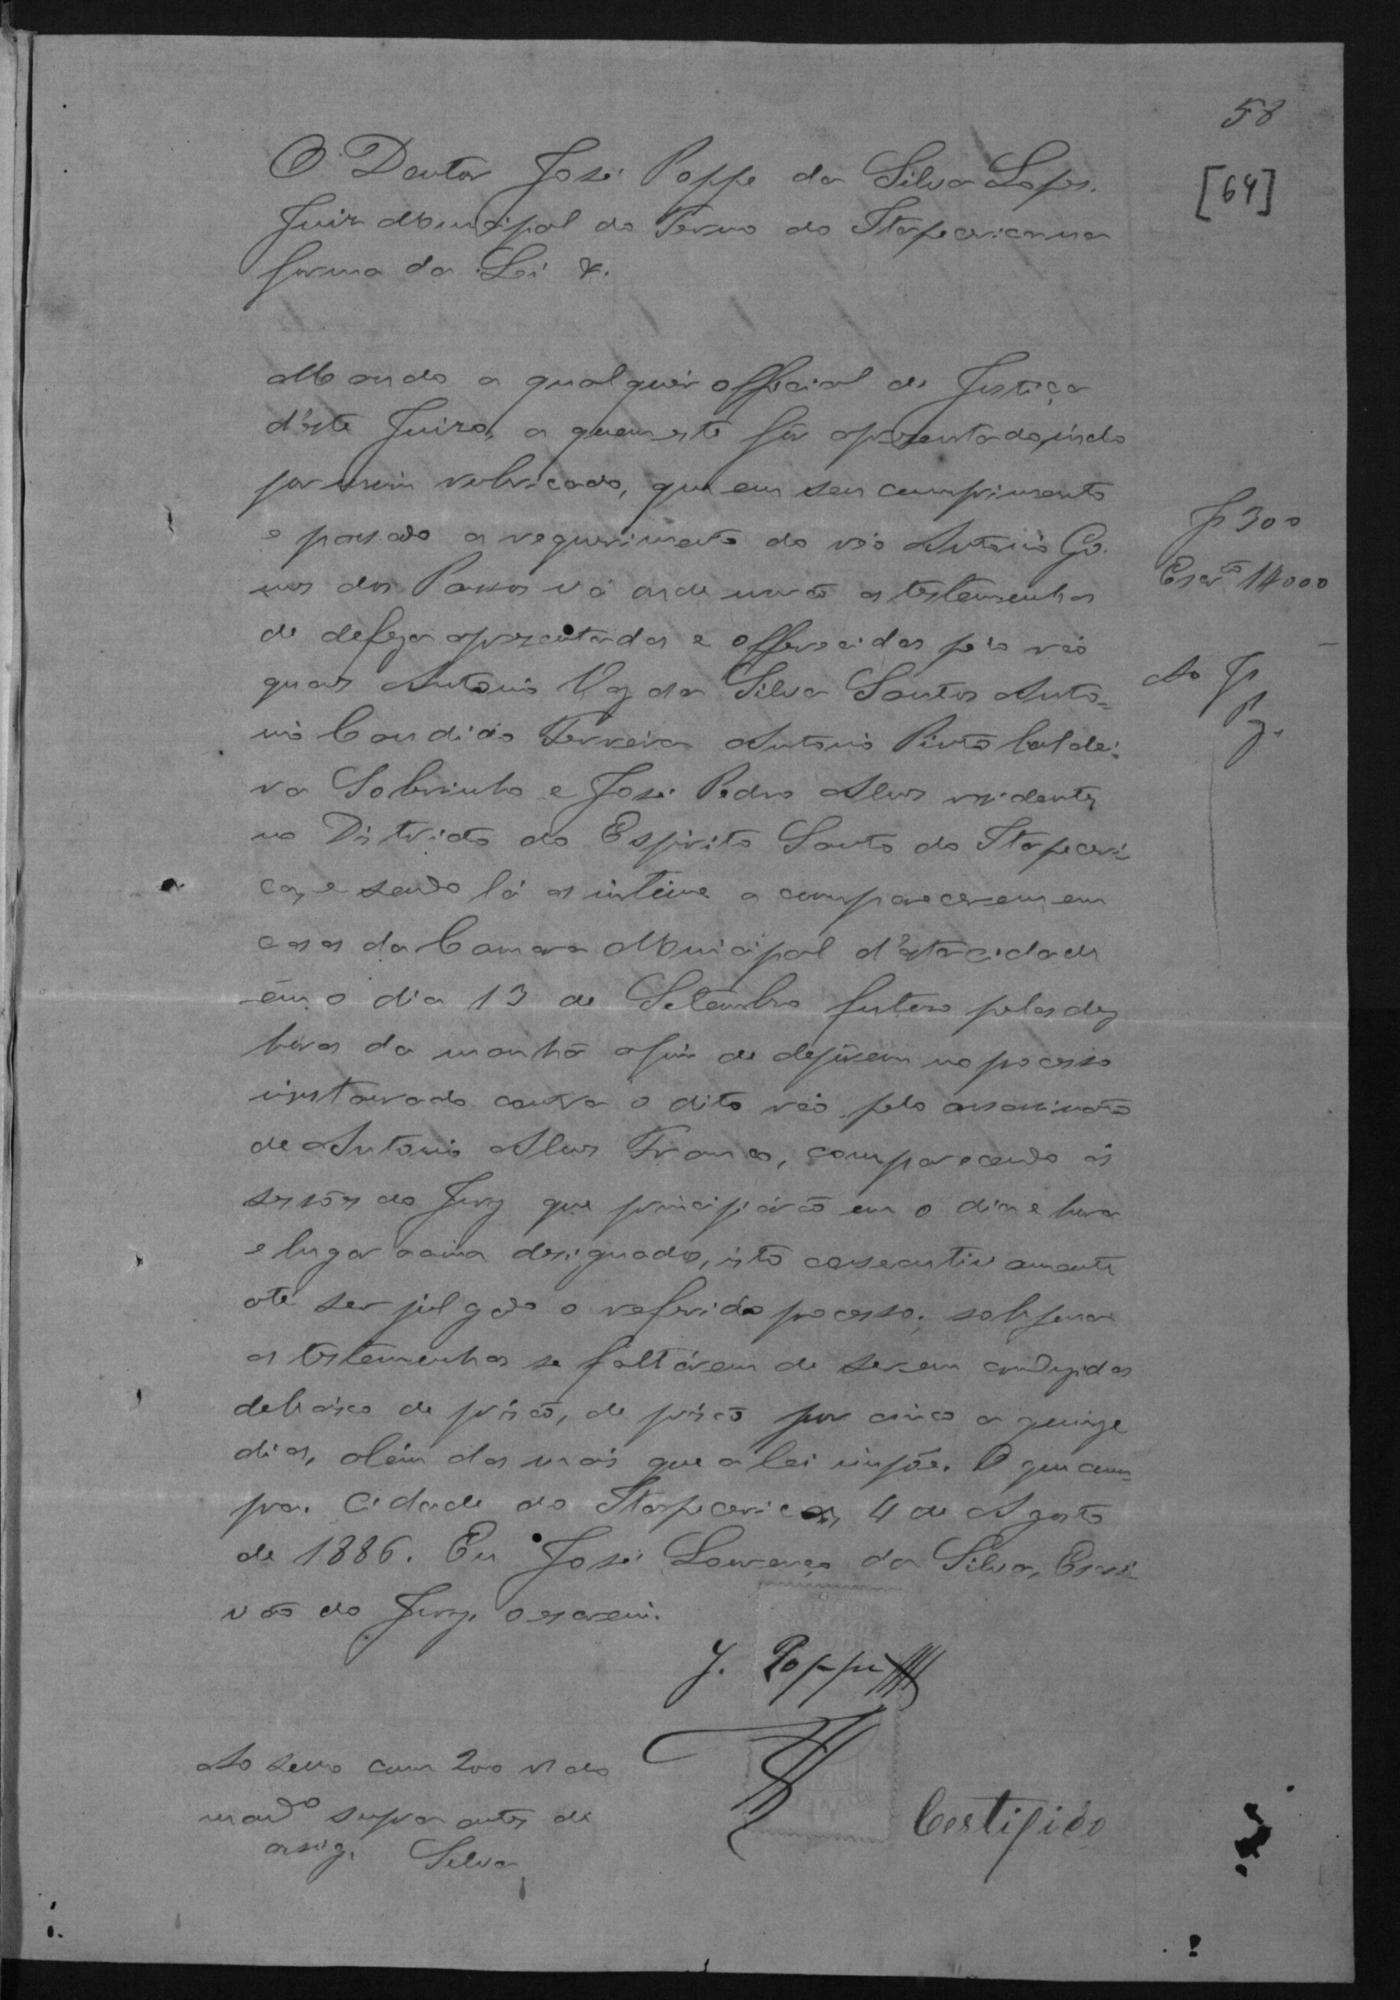 58
[64]
O Doutor José Poppe da Silva Lopes.
Juiz Municipal do Termo do Itapecerica na
forma da Lei &.
Mando a qualquer official de Justiça
d'este Juizo, a quem este fôr apresentado, indo
por mim rubricado, que em seu cumprimento
e passado a requerimento do réo Antonio Go
mes dos Passos vá onde morão as testemunhas
de defeza apresentadas e offerecidas pelo réo
quaes Antonio Vaz da Silva Santos Anto=
nio Candido Ferreira Antonio Pinto Caldei=
ra Sobrinho e José Pedro Alves residentes
no Districto do Espirito Santo do Itapeceri=
ca, e sendo lá as intime a comparecerem em
casa da Camara Municipal d'esta cidade
em o dia 13 de Setembro futuro pelas dez
horas da manhã afim de depôrem no processo
instaurado contra o dito réo pelo assassinato
de Antonio Alves Franco, comparecendo ás
sessões do Jury que principiárão em o dia e hora
e lugar acima designado, isto consecutivamente
até ser julgado o referido processo; sob pena
as testemunhas se faltárem de serem conduzidas
debaixo de prisão, de prisão por cinco a quinze
dias, além das mais que a lei impõe. O que cum=
pra. Cidade do Itapecerica, 4 de Agosto
de 1886. Eu José Lourenço da Silva, Escri=
vão do Jury, o escrevi.
J. Poppe
Jz 300
Escrᵐ 1#000
Ao Jz
Pg.
Ao sello com 200 rs do
mandº supra antes de
assig. Silva
Certifico